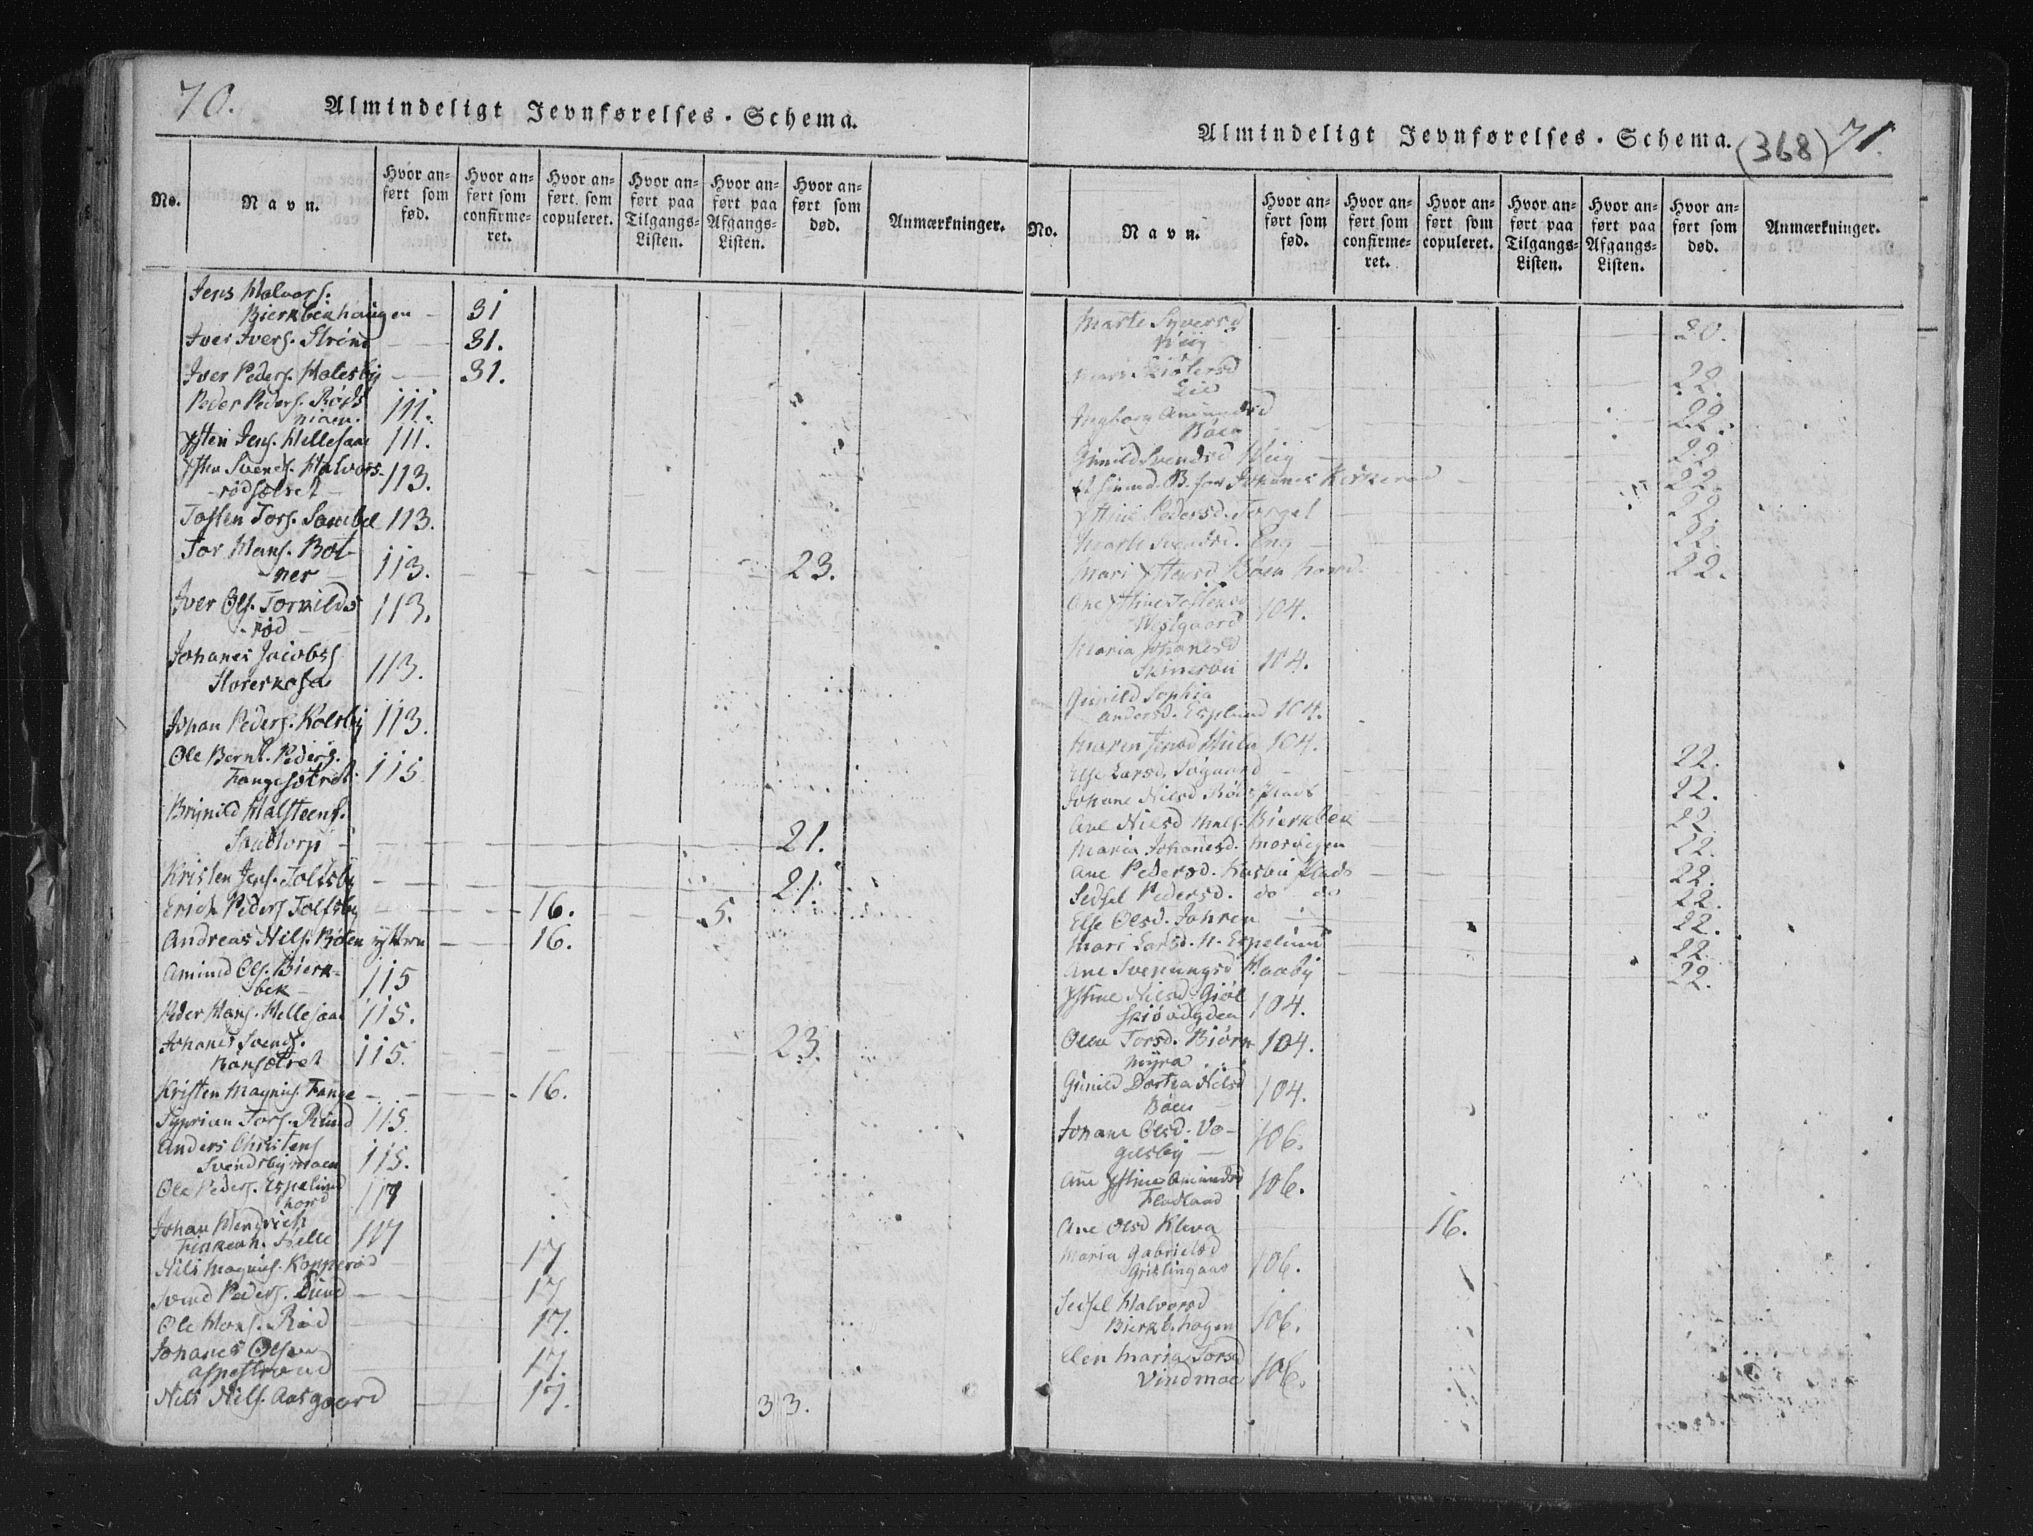 70.
Almindeligt Jevnførelses-Schema.
No.
Navn.
Hvor anført som fød.
Hvor anført som confirmeret.
Hvor anført som copuleret.
Hvor anført paa Tilgangs-Listen.
Hvor anført paa Afgangs-Listen.
Hvor anført som død.
Anmærkninger.
Jens Halvors.
Bierkbekhaugen - 31
Iver Ivers. Strönd - 31.
Iver Peders. Holesby - 31.
Peder Peders. Röds
moen. 111.
Ysten Jens. Hellesaae 111.
Ysten Svends. Halvors-
rödsætret - 113.
Tosten Tors. Sambøl 113.
Tor Hans. Böt-
ner - 113. - 23.
Iver Ols. Torkilds
-röd 113.
Johanes Jacobss
Storerkosa 113.
Johan Peders. Kolsby 113.
Ole Bernt. Peders.
Fangesætret. 115
Brynild Halsteens.
Sandtorp - 21.
Kristen Jens. Toltsby - 21.
Erich Peders Toltsby - 16. - 5.
Andreas Nils. Böen yttre - 16.
Amund Ols. Bierk-
bek - 115
Peder Hans. Hellesaae 115.
Johanes Svends.
Bönsætret 115. - 23.
Kristen Magnus. Fange - 16.
Syprian Tors. Rund 115.
Anders Christens
Svendsbymoen 115.
Ole Peders. Espelund
nord 117
Johan Hendrich
Finkenh. Helle 117
Nils Magnus. Kopperöd - 17
Svend Peders. Lund - 17
Ole Hans. Röd - 17.
Johanes Olsen
Aspestrand 17.
Nils Nils. Aasgaard - 17. 33.
Almindeligt Jevnførelses-Schema. (368) 71.
No.
Navn.
Hvor anført som fød.
Hvor anført som confirmeret.
Hvor anført som copuleret.
Hvor anført paa Tilgangs-Listen.
Hvor anført paa Afgangs-Listen.
Hvor anført som død.
Anmærkninger.
Marte Syversd
- 20.
Lie - 22.
Ingborg Amundsd
Böen - 22.
Gunild Svendsd - 22
Johanes Kirkeröd - 22.
Ystine Pedersd. Torgal - 22.
Marte Svendsd. Eng - 22.
Mari Ystensd Böen hand. - 22.
Ane Ystine Tostensd
Westgaard 104.
Maria Johanesd
104.
Gunild Sophia
Andersd. Esplund 104.
Maren Jensd 104.
Else Larsd. Søgaard - 22.
Johane Nielsd Röds plads - 22.
Ane Nilsd Hals. Bierkbek - 22
Maria Johanesd. Morvigen - 22.
Ane Pedersd. Husbye Plads - 22.
Sedsel Pedersd. do do 22.
Else Olsd. Jahren - 22.
Mari Larsd. N. Espelund 22
Ane Svenungsd Haaby - 22.
Ystine Nielsd. Giöl
skiöödyden 104.
Olea Torsd. Biörn
myra 104.
Gunild Dortea Nilsd
Böen 104.
Johane Olsd. Vo-
gelsby - 106.
Ane Ystine Amundsd
Fladland 106.
Ane Olsd Kleva 16.
Maria Gabrielsd
Griklingaas 106.
Sedsel Halvorsd
Bierkb.hogen 106.
Elen Maria Torsd
Vindmoe 106.